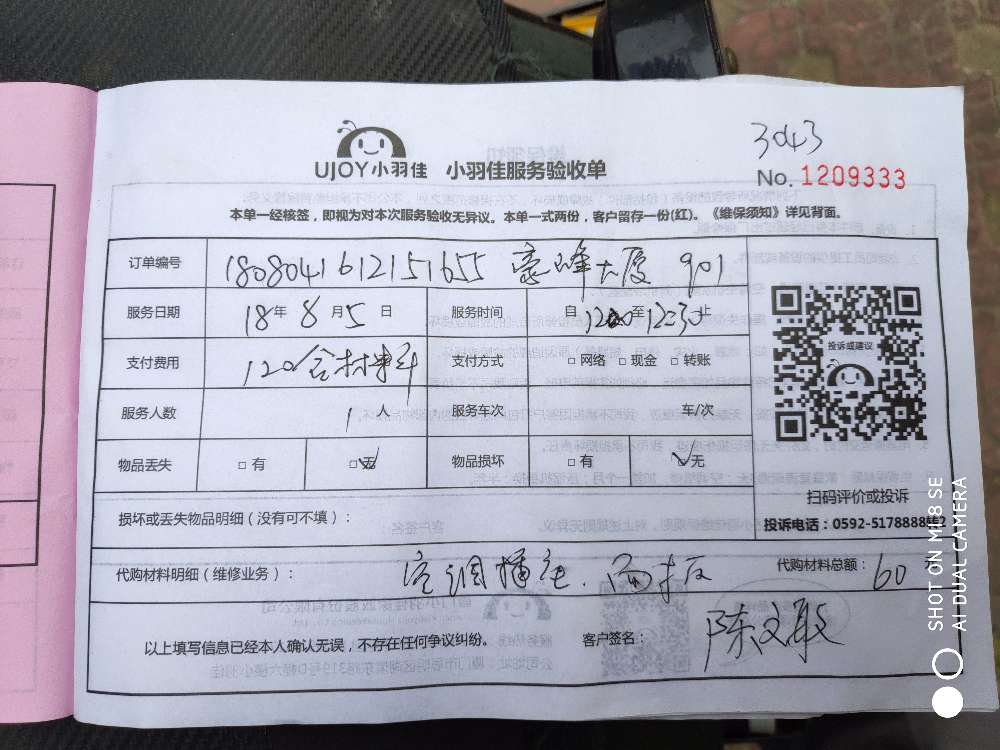 3043
UJOY小羽佳 小羽佳服务验收单
No. 1209333
本单一经核签，即视为对本次服务验收无异议。本单一式两份，客户留存一份(红)。《维保须知》详见背面。
订单编号 1808041612151655 豪峰大厦 901
服务日期 18年 8月5日 服务时间 自 1200至1230止
支付费用 120含材料 支付方式 □网络 □现金 □转账
服务人数 1人 服务车次 车/次
物品丢失 □有 □无 物品损坏 □有 无
投诉或建议
扫码评价或投诉
损坏或丢失物品明细（没有可不填）：
投诉电话：0592-5178888
代购材料明细（维修业务）： 空调插座. 面板 代购材料总额： 60元
以上填写信息已经本人确认无误，不存在任何争议纠纷。 客户签名： 陈文敏
SHOT ON MI 8 SE
AI DUAL CAMERA